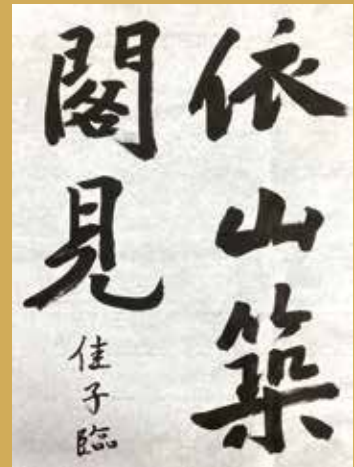 依山築
閣見
佳子臨